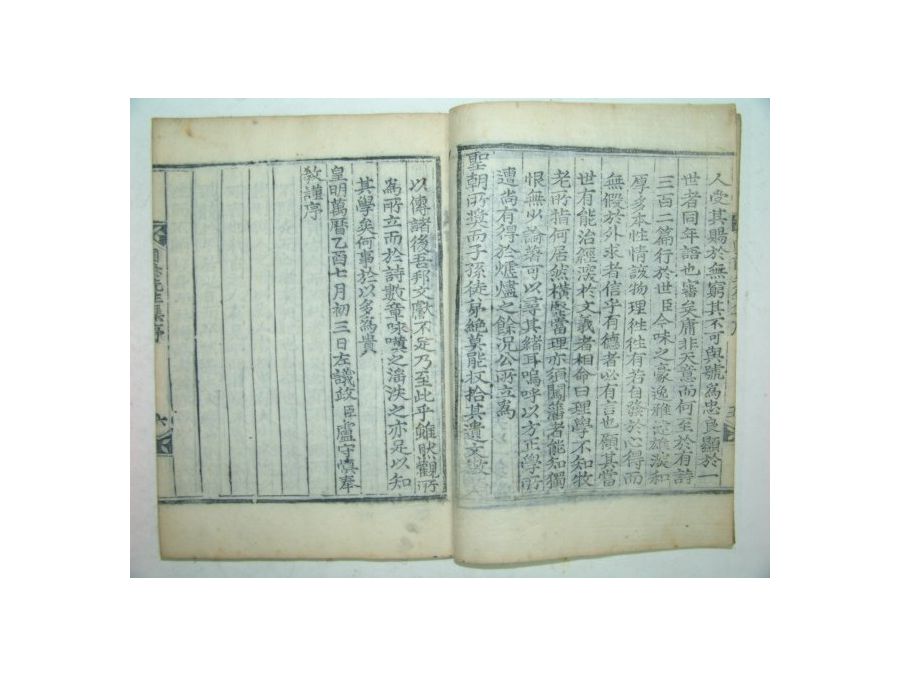 人受其賜於無窮其不可與號為忠良顯於一
世者同年語也審矣庸非天意而何至於有詩
三百二篇行於世臣今味之豪逸雅健雄深和
厚多本性情該物理往往有若自發於心得而
無假於外求者信乎有德者必有言也顧其當
世有能治經深於文義者相命曰理學不知牧
老所指何居然橫竪當理亦須閫藩者能知獨
恨無以論著可以尋其緒耳嗚呼以方正學所
遭尚有得於煨燼之餘況公所立為
聖朝所奬而子孫徒弟絕莫能收拾其遺文
以傳諸後吾邦文獻不足乃至此乎雖然觀所
為所立而於詩數章咏嘆之滛泆之亦足以知
其學矣何事於以多為貴
皇明萬曆乙酉七月初三日左議政臣盧守愼奉
敎謹序
圃隱先生集序
六